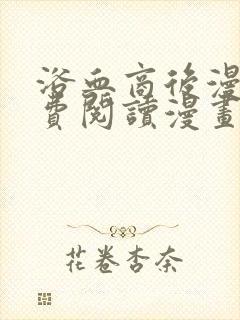 浴血商後漫
費閱讀漫畫
花卷杏奈